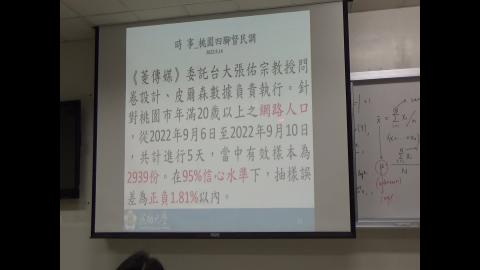 時 事_桃園四腳督民調
2022.9.14
《菱傳媒》委託台大張佑宗教授問
卷設計、皮爾森數據負責執行。針
對桃園市年滿20歲以上之網路人口
,從2022年9月6日至2022年9月10日
,共計進行5天,當中有效樣本為
2939份。在95%信心水準下,抽樣誤
差為正負1.81%以內。